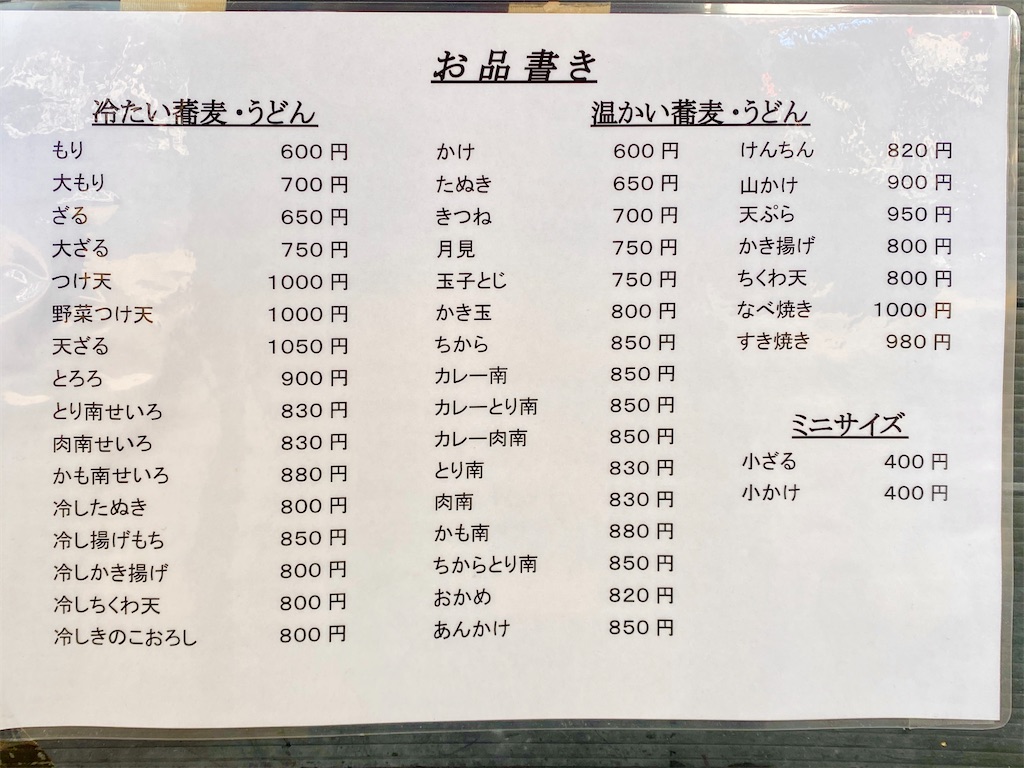 お品書き
冷たい蕎麦・うどん
もり 600円
大もり 700円
ざる 650円
大ざる 750円
つけ天 1000円
野菜つけ天 1000円
天ざる 1050円
とろろ 900円
とり南せいろ 830円
肉南せいろ 830円
かも南せいろ 880円
冷したぬき 800円
冷し揚げもち 850円
冷しかき揚げ 800円
冷しちくわ天 800円
冷しきのこおろし 800円
温かい蕎麦・うどん
かけ 600円
たぬき 650円
きつね 700円
月見 750円
玉子とじ 750円
かき玉 800円
ちから 850円
カレー南 850円
カレーとり南 850円
カレー肉南 850円
とり南 830円
肉南 830円
かも南 880円
ちからとり南 850円
おかめ 820円
あんかけ 850円
けんちん 820円
山かけ 900円
天ぷら 950円
かき揚げ 800円
ちくわ天 800円
なべ焼き 1000円
すき焼き 980円
ミニサイズ
小ざる 400円
小かけ 400円